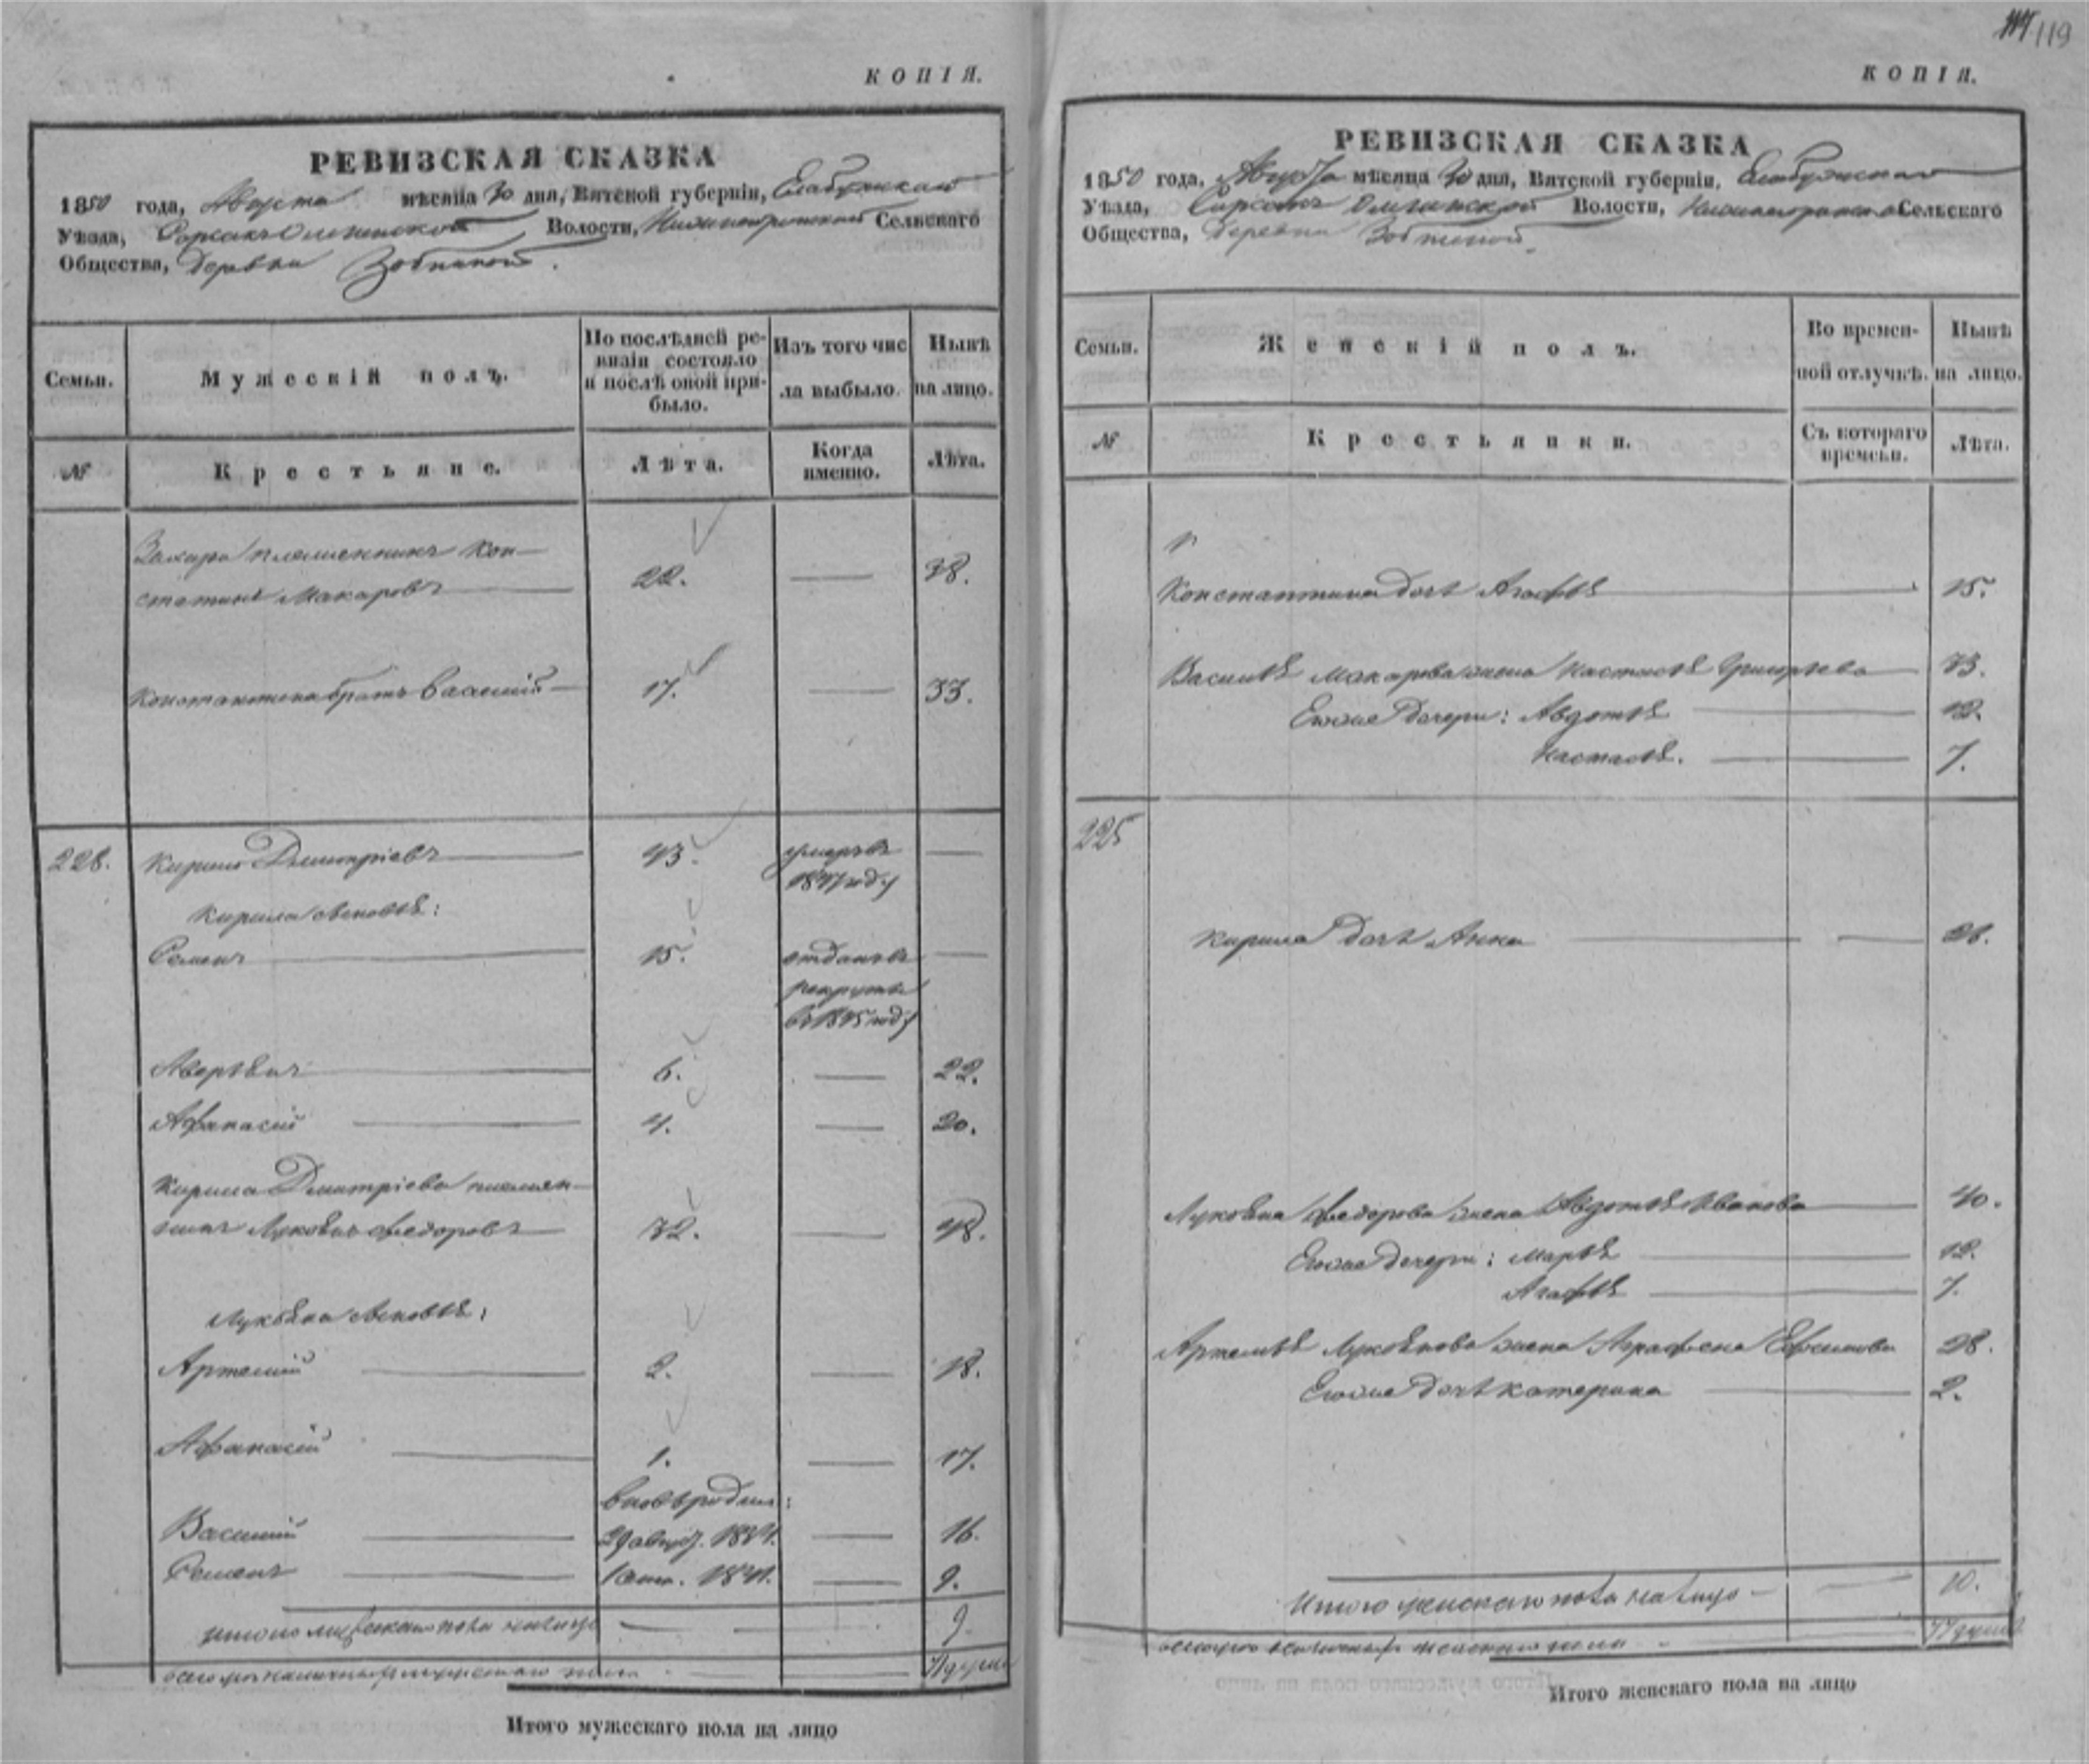 119
КОПІЯ.
РЕВИЗСКАЯ СКАЗКА
1850 года, Августа мѣсяца 30 дня, Вятской губерніи, Елабужскаго
Уѣзда, Волости, Сельскаго
Общества, Деревни Зобниной.
Семьи.
Мужескій полъ.
По послѣдней ре-
визіи состояло
и послѣ оной при-
было.
Изъ того чис
ла выбыло.
Нынѣ
на лицо.
№
Крестьяне.
Лѣта.
Когда
именно.
Лѣта.
Захара племенникъ Кон-
стантинъ Макаровъ 22. 38.
Константина братъ Василий 17. 33.
228. Кирило Дмитріевъ 43. умеръ въ
1847 году
Кирила сыновья:
Семенъ 15. отданъ въ
рекруты
въ 1845 году
Аверьянъ 6. 22.
Афанасий 4. 20.
Кирила Дмитріева племян-
никъ Лукоянъ Федоровъ 32. 48.
Лукояна сыновья:
Артемий 2. 18.
Афанасий 1. 17.
вновь рожден:
Василий 29 август. 1834. 16.
Семенъ 1841. 9.
Итого мужескаго пола налицо 9.
всего мужескаго пола
Итого мужескаго пола на лицо
КОПІЯ.
РЕВИЗСКАЯ СКАЗКА
1850 года, Августа мѣсяца 30 дня, Вятской губерніи, Елабужскаго
Уѣзда, Волости, Сельскаго
Общества, Деревни Зобниной.
Семьи.
Женскій полъ.
Во времен-
ной отлучкѣ.
Нынѣ
на лицо.
№
Крестьянки.
Съ котораго
времени.
Лѣта.
Константина дочь Агафья 15.
Василья Макарова жена Настасья Григорьева 33.
Его же дочери: Авдотья 12.
Настасья. 7.
225
Кирила дочь Анна 28.
Лукояна Федорова жена Авдотья Иванова 40.
Его же дочери: Марья 12.
Агафья 7.
Артемья Лукоянова жена Аграфена Ефимова 28.
Его же дочь Катерина 2.
Итого женскаго пола налицо 10.
женскаго пола
Итого женскаго пола на лицо